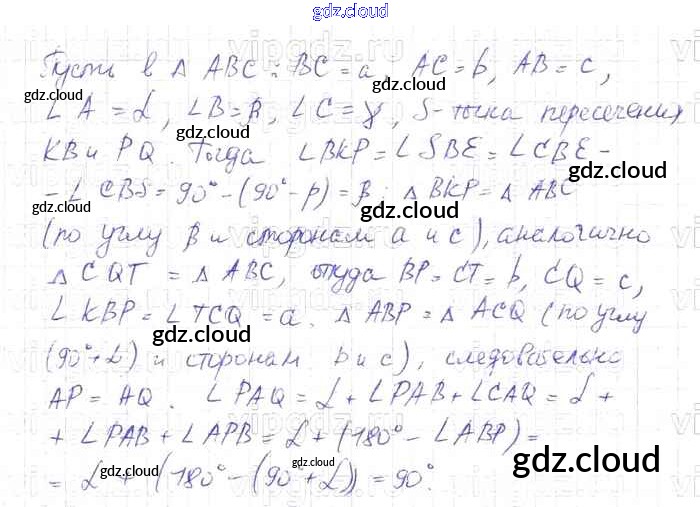 gdz.cloud
Пусть в △ ABC: BC = a, AC = b, AB = c,
∠A = α, ∠B = β, ∠C = γ, S - точка пересечения
KB и PQ. Тогда ∠BKP = ∠SBE = ∠CBE -
- ∠CBS = 90° - (90° - β) = β; △ BKP = △ ABC
(по углу β и сторонам a и c), аналогично
△ CQT = △ ABC, откуда BP = CT = b, CQ = c,
∠KBP = ∠TCQ = α. △ ABP = △ ACQ (по углу
(90° + α) и сторонам b и c), следовательно
AP = AQ. ∠PAQ = α + ∠PAB + ∠CAQ = α +
+ ∠PAB + ∠APB = α + (180° - ∠ABP) =
= α + (180° - (90° + α)) = 90°.
gdz.cloud
gdz.cloud
gdz.cloud
gdz.cloud
gdz.cloud
gdz.cloud
gdz.cloud
gdz.cloud
gdz.cloud
gdz.cloud
gdz.cloud
gdz.cloud
gdz.cloud